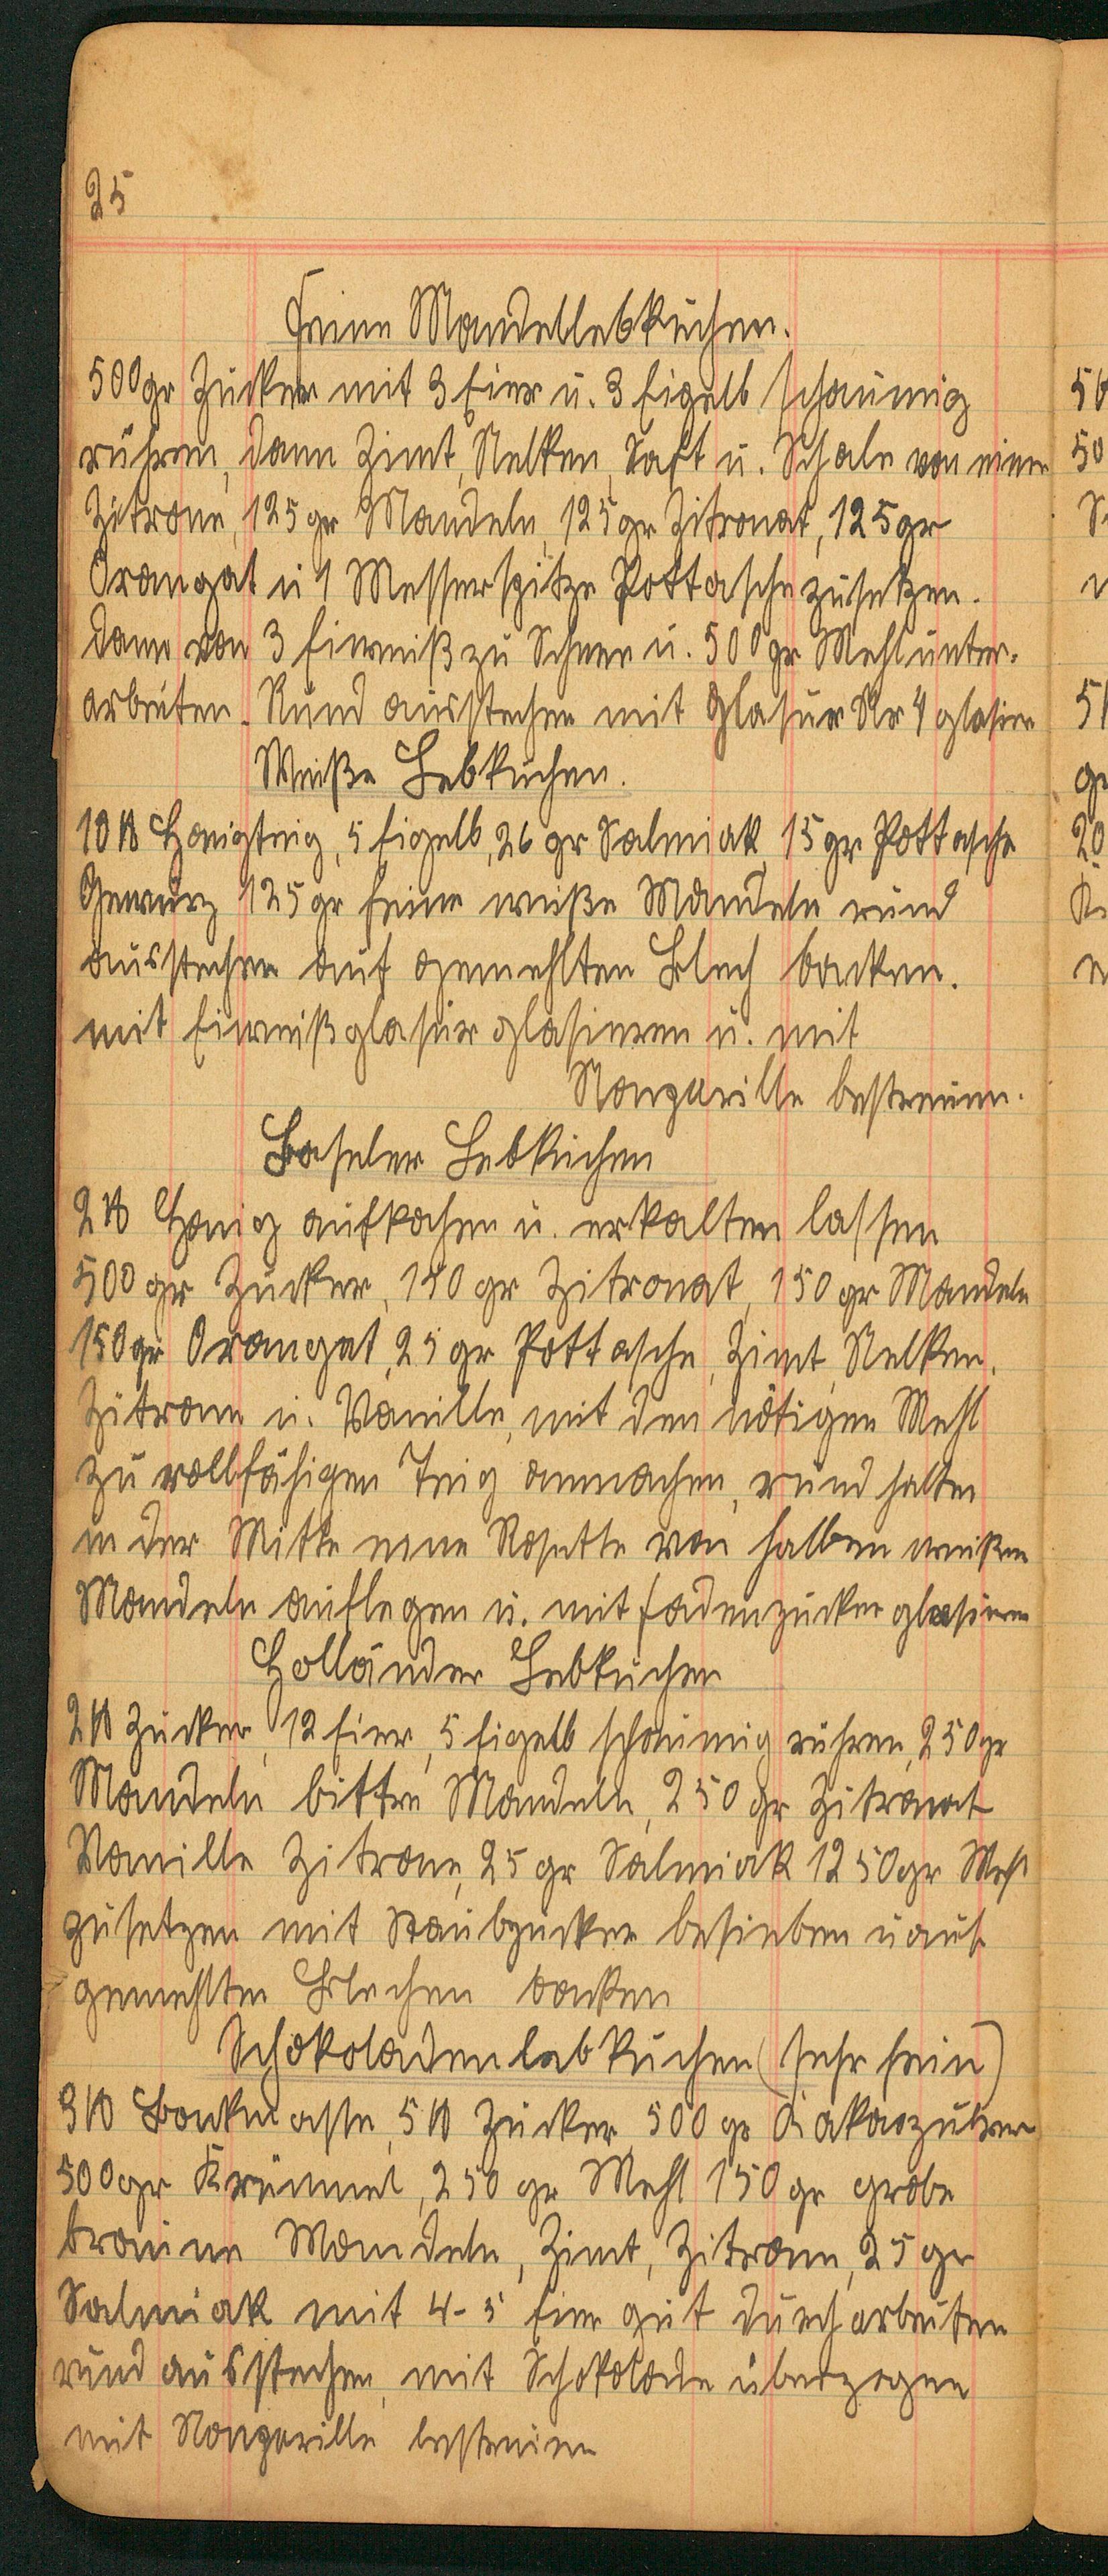 25
Feine Mandellebkuchen.
500gr Zucker mit 3 Eier u. 3 Eigelb schaumig
rühren, dann Zimt, Nelken, Saft u. Schale von einer
Zitrone, 125gr Mandeln, 125gr Zitronat, 125gr
Orangat u 1 Messerspitze Pottasche zusetzen.
dann von 3 Eiweiß zu Schnee u. 500gr Mehl unter-
arbeiten. Rund ausstechen mit Glasur Nr 4 glasier
Weiße Lebkuchen.
10 ℔ Honigteig, 5 Eigelb, 26 gr Salmiak, 15gr Pottasche
Gewürz 125gr feine weiße Mandeln rund
ausstechen auf gemehlten Blech backen.
mit Eiweißglasur glasieren u. mit
Nonparille bestreuen.
Baseler Lebkuchen
2 ℔ Honig aufkochen u. erkalten lassen
500 gr Zucker, 150 gr Zitronat, 150 gr Mandeln
150gr Orangat, 25 gr Pottasche, Zimt, Nelken,
Zitrone u. Vanille, mit den nötigen Mehl
zu rollfähigen Teig anmachen, rund halten
in der Mitte eine Rosette von halben weißen
Mandeln auflegen u. mit Fadenzucker glasieren
Holländer Lebkuchen
2 ℔ Zucker, 12 Eier, 5 Eigelb schaumig rühren, 250gr
Mandeln bittre Mandeln, 250 gr Zitronat
Vanille Zitrone, 25 gr Salmiak 1250gr Mehl
zusetzen mit Staubzucker besieben u auf
gemehlten Blechen backen
Schokoladenlebkuchen (sehr fein)
3 ℔ Backmasse, 5 ℔ Zucker, 500 gr Kakao
500gr Krümmel, 250 gr Mehl 150 gr grobe
braune Mandeln, Zimt, Zitrone, 25 gr
Salmiak mit 4-5 Eier gut durcharbeiten
rund ausstechen, mit Schokolade überzogen
mit Nonparille bestreuen